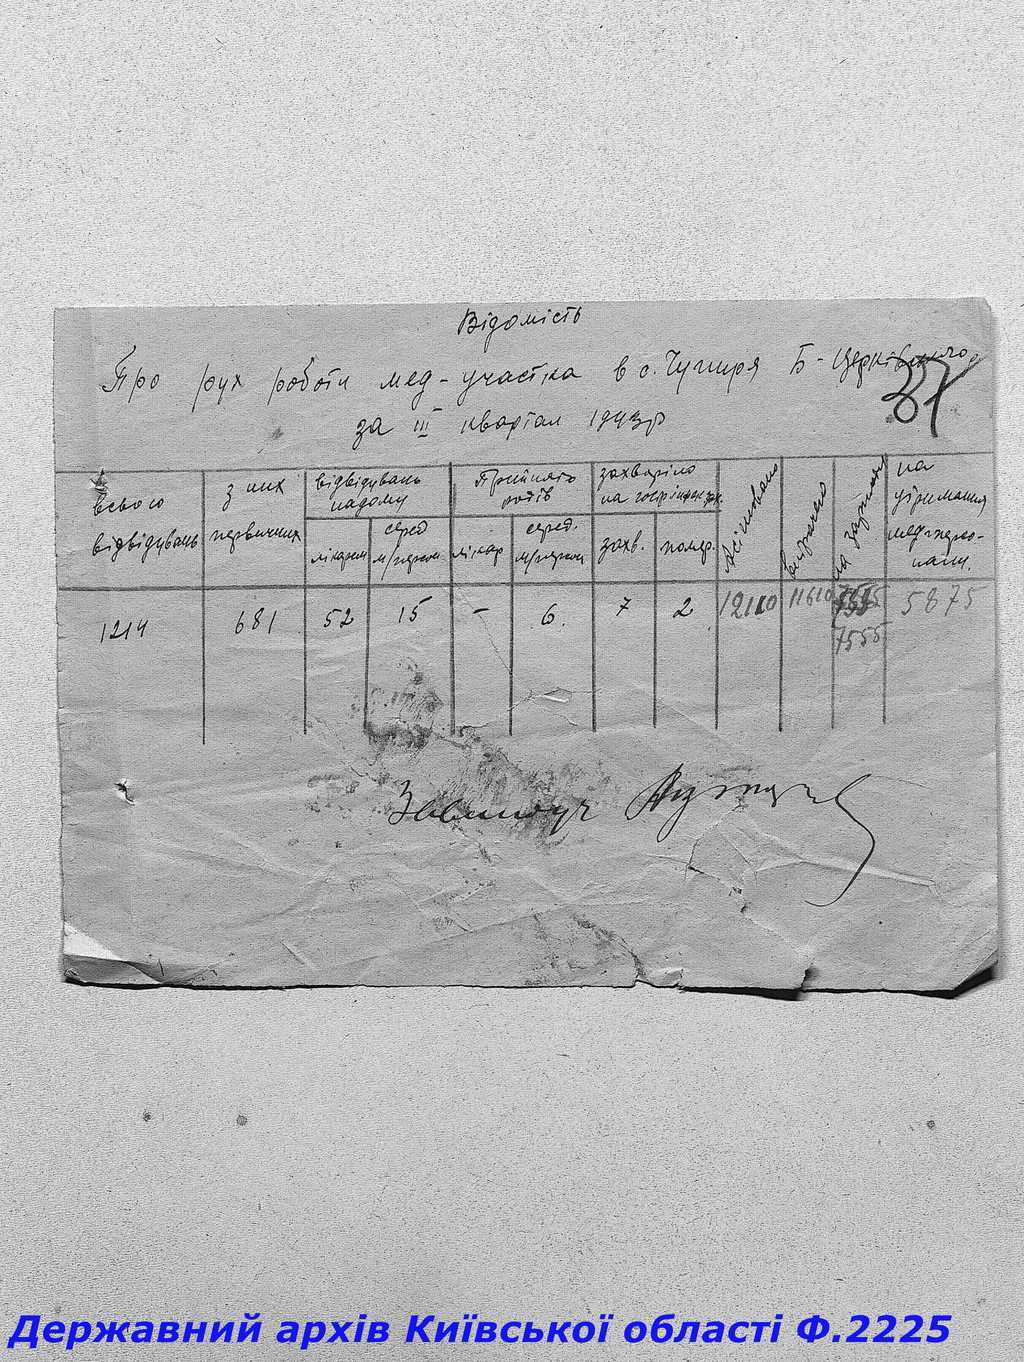 Відомість
Про рух роботи мед-участка в с. Чупиря Б-Церківського
за III квартал 1943р
87
всього відвідувань
з них первичних
відвідувань надому
лікарем
серед м/персон.
Прийнято родів
лікар
серед. м/персон
захворіло на гострінфек. зах.
захв.
помер.
Асігновано
витрачено
на зарплату
на утримання мед-персоналу.
1214 681 52 15 – 6. 7 2 12110 11610 5875
7555
Державний архів Київської області Ф.2225